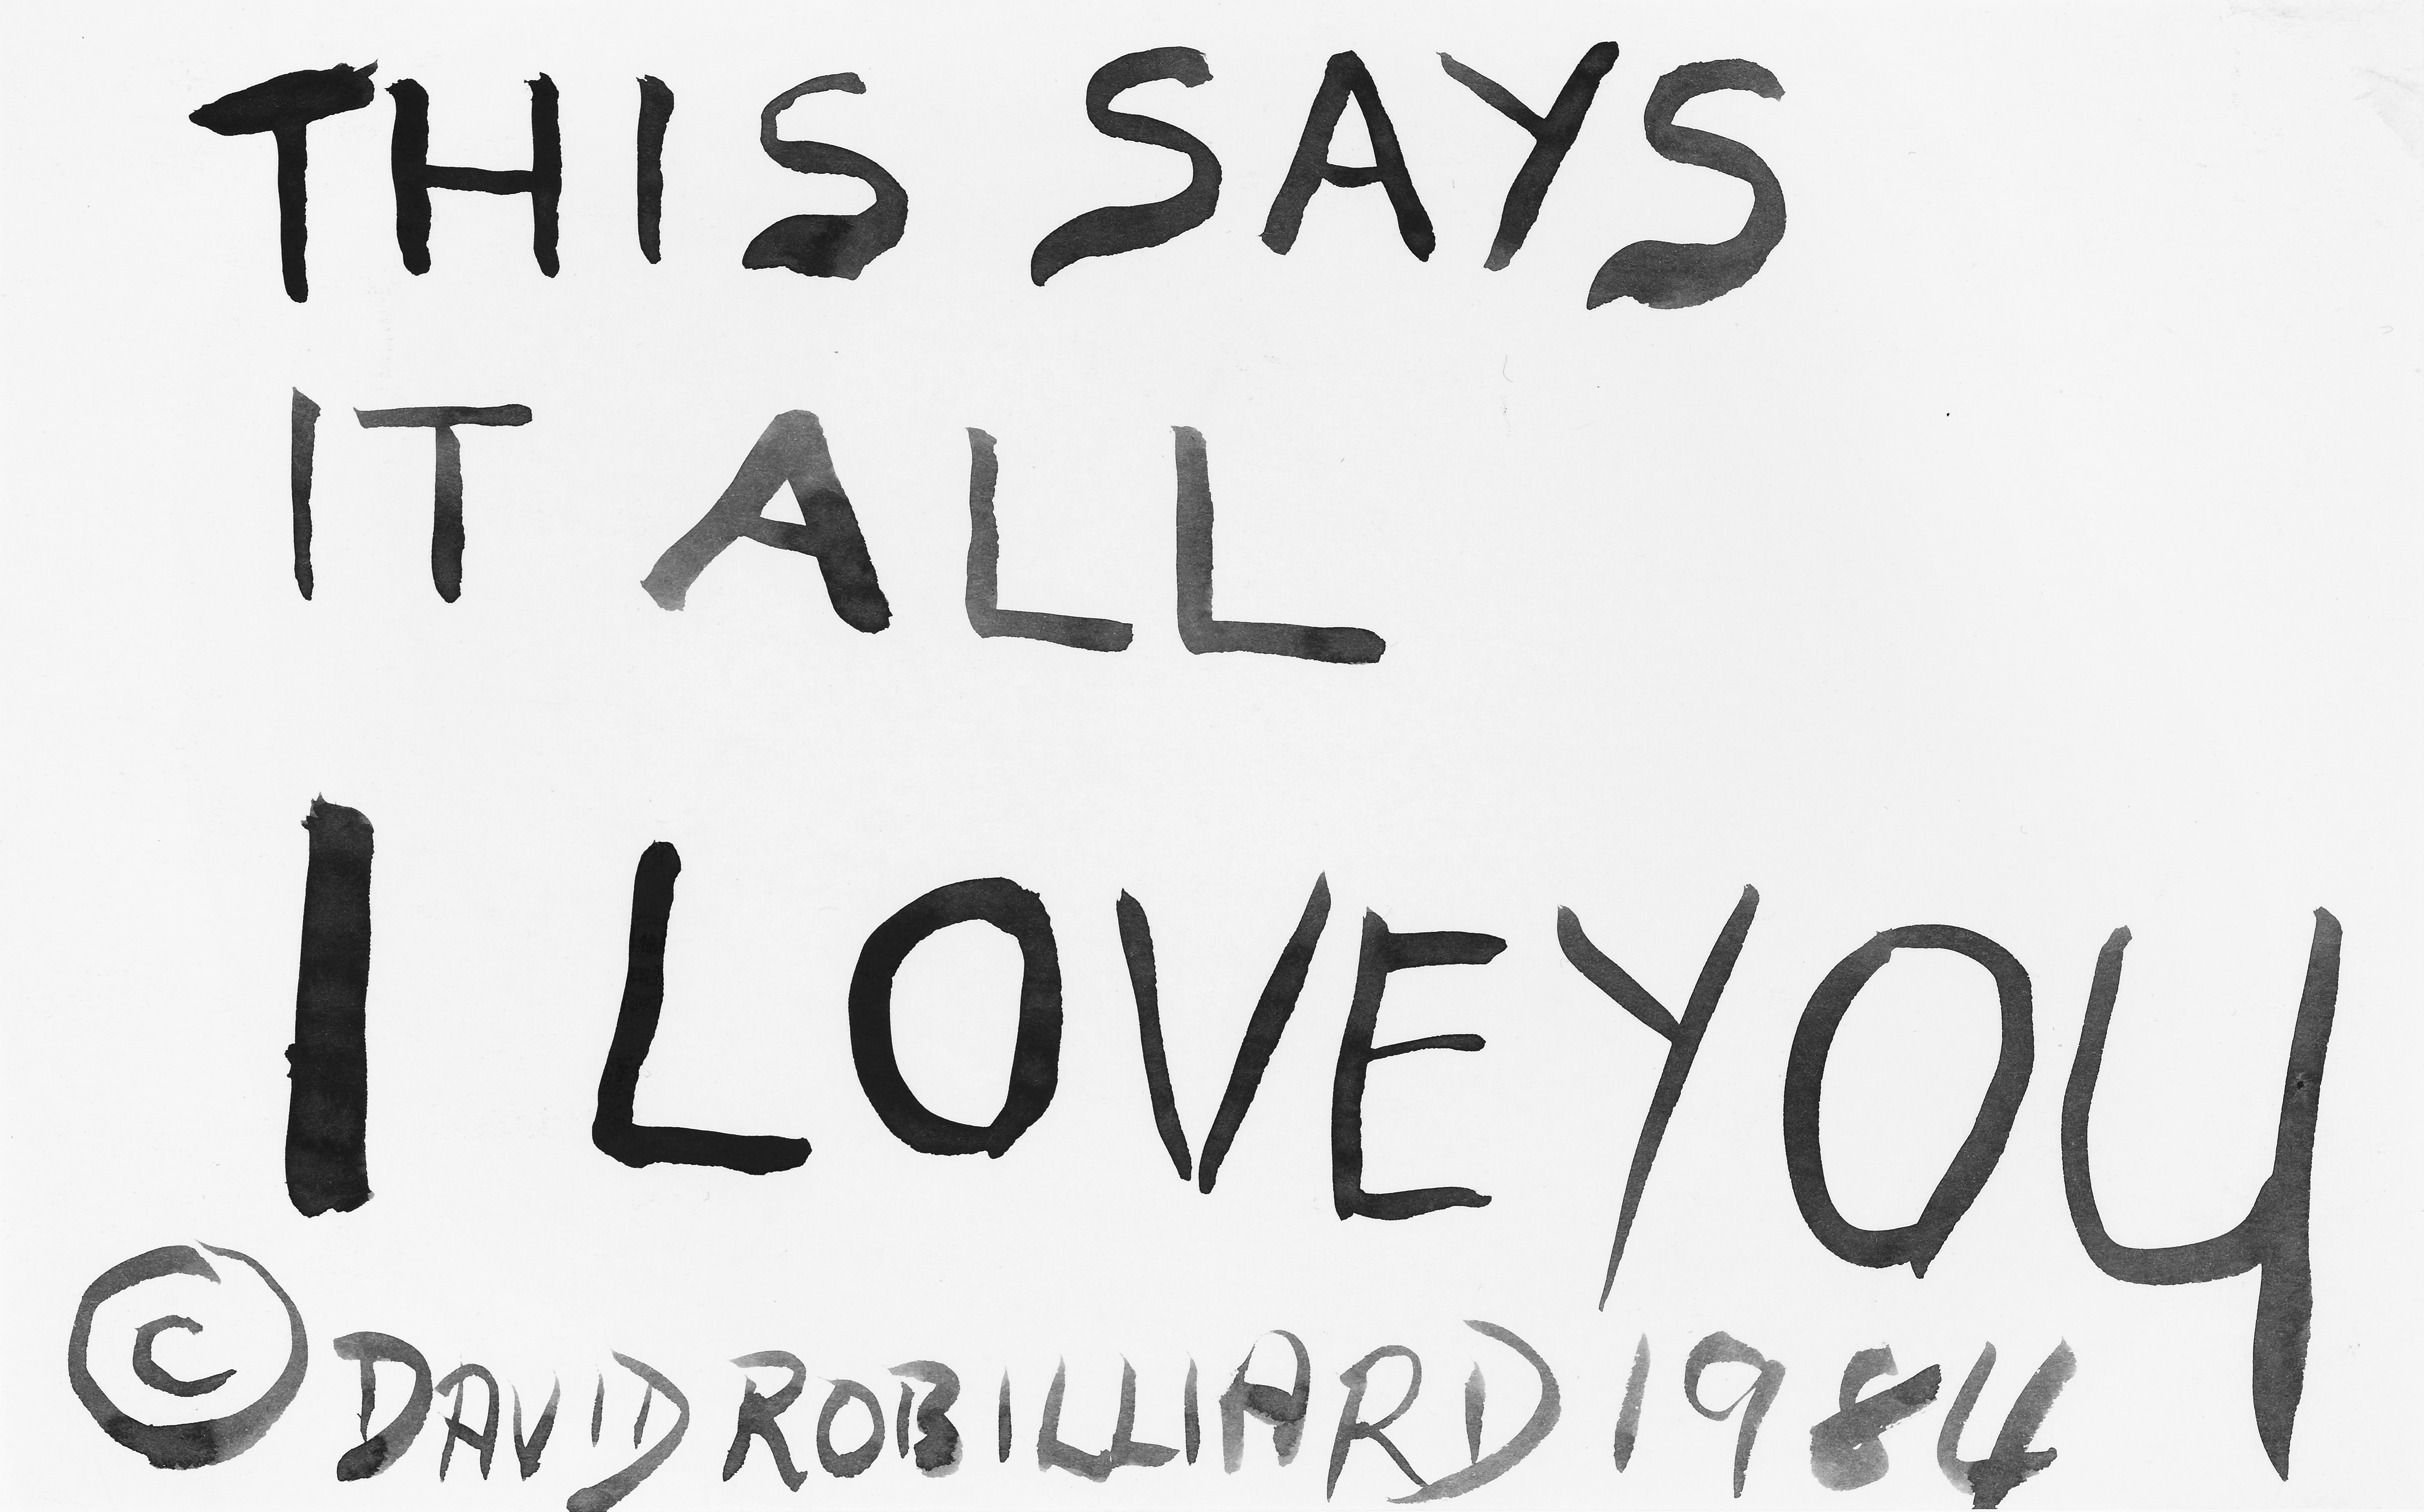 THIS SAYS
IT ALL
I LOVE YOU
© DAVID ROBILLIARD 1984